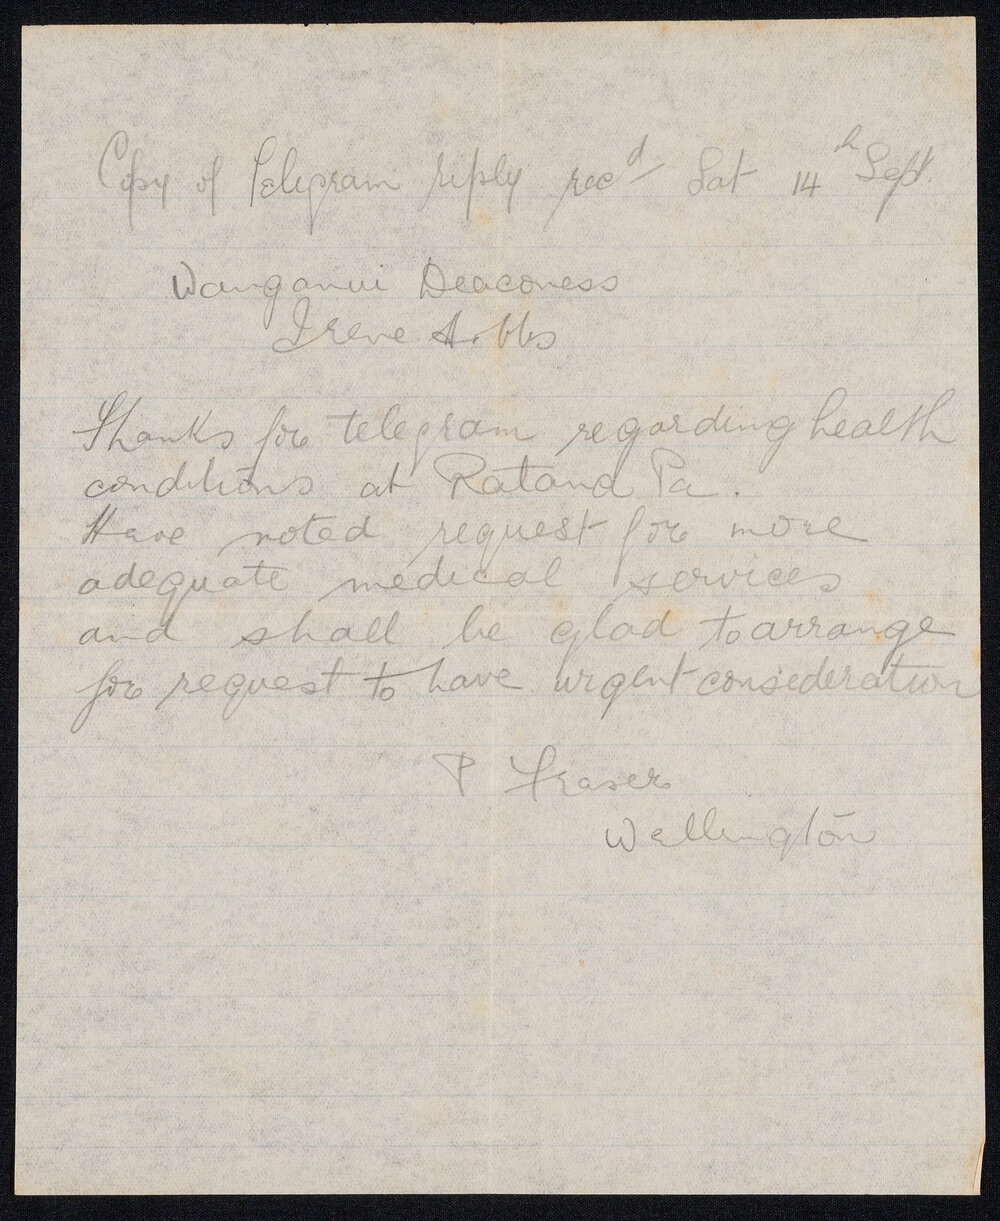 Copy of Telegram reply rec'd Sat 14th Sept.
Wanganui Deaconess
Irene Hobbs
Thanks for telegram regarding health
conditions at Ratana Pa.
Have noted request for more
adequate medical services
and shall be glad to arrange
for request to have urgent consideration
P Fraser
Wellington